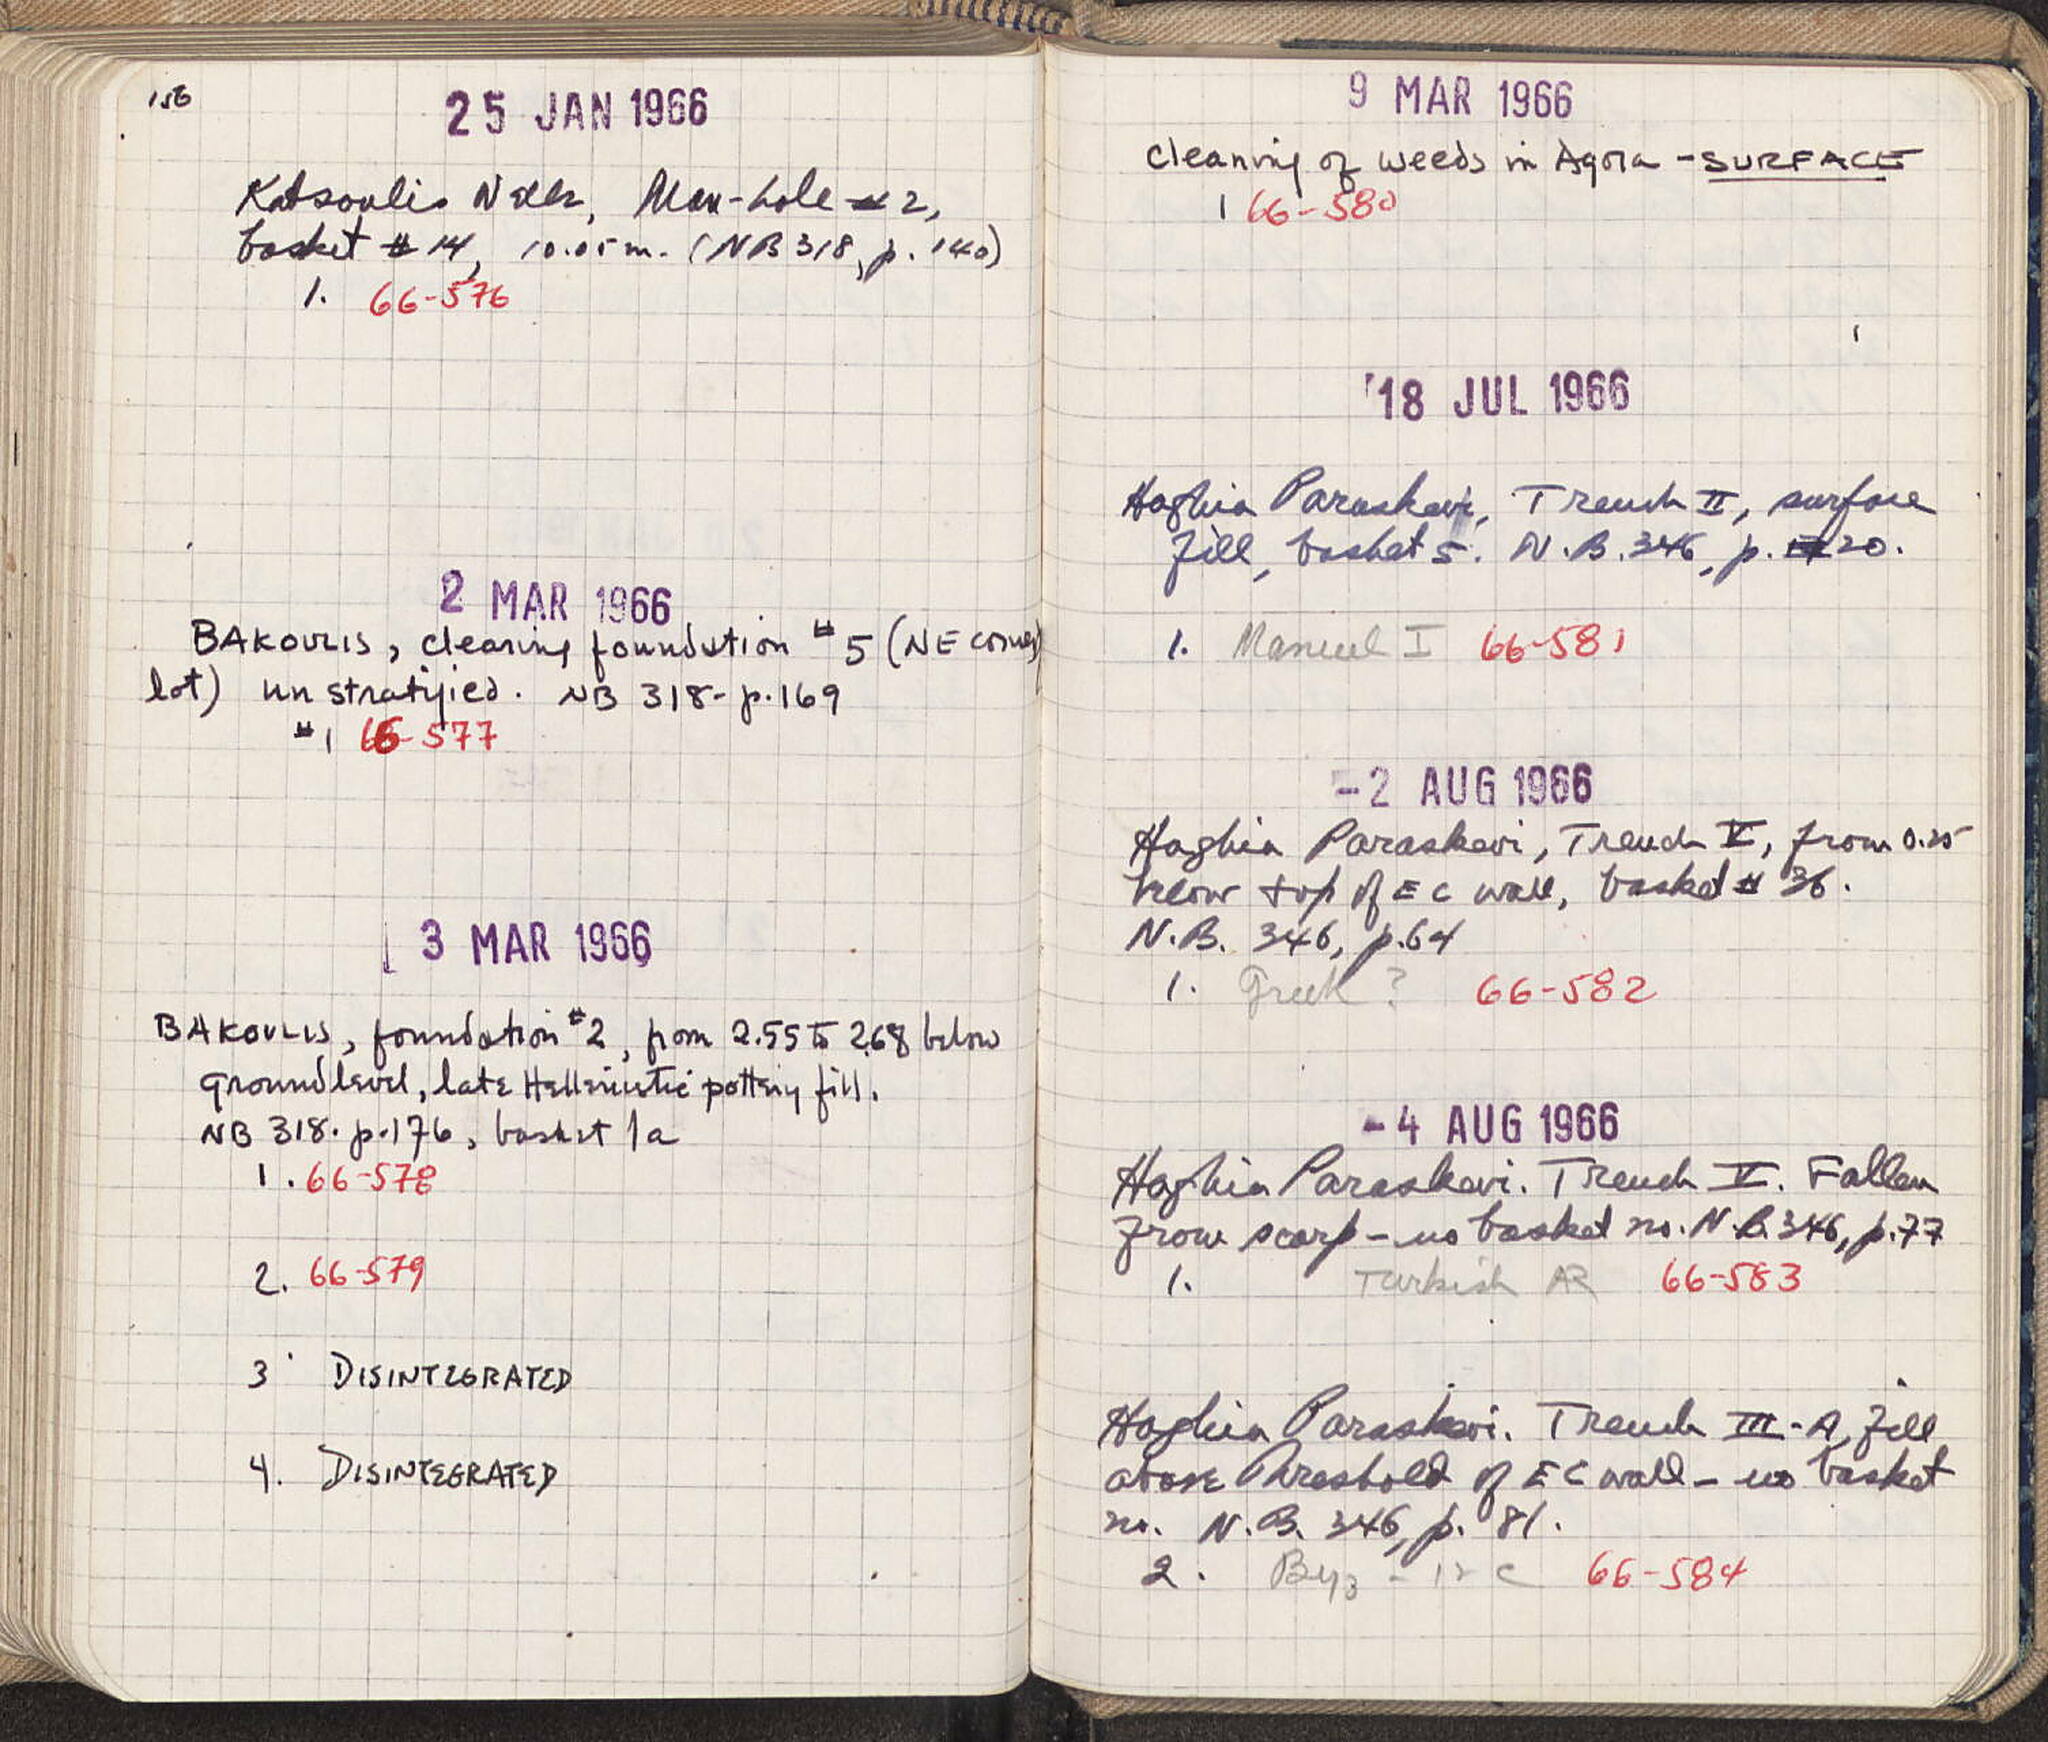 156
25 JAN 1966
Katsoulis Well, Man-hole #2,
basket #14, 10.05m. (NB 318, p. 140)
1. 66-576
2 MAR 1966
BAKOULIS, clearing foundation #5 (NE corner
lot) unstratified. NB 318- p.169
#1 66-577
3 MAR 1966
BAKOULIS, foundation #2, from 2.55 to 2.68 below
ground level, late Hellenistic pottery fill.
NB 318. p.176, basket 1a
1. 66-578
2. 66-579
3. DISINTEGRATED
4. DISINTEGRATED
9 MAR 1966
cleaning of weeds in Agora - SURFACE
1 66-580
18 JUL 1966
Haghia Paraskevi, Trench II, surface
fill, basket 5. N.B. 346, p. 20.
1. Manuel I 66-581
-2 AUG 1966
Haghia Paraskevi, Trench V, from 0.25
below top of EC wall, basket # 36.
N.B. 346, p.64
1. Greek? 66-582
-4 AUG 1966
Haghia Paraskevi. Trench V. Fallen
from scarp - no basket no. N.B. 346, p.77
1. Turkish AR 66-583
Haghia Paraskevi. Trench III-A, fill
above threshold of EC wall - no basket
no. N.B. 346, p. 81.
2. Byz - 12 C 66-584